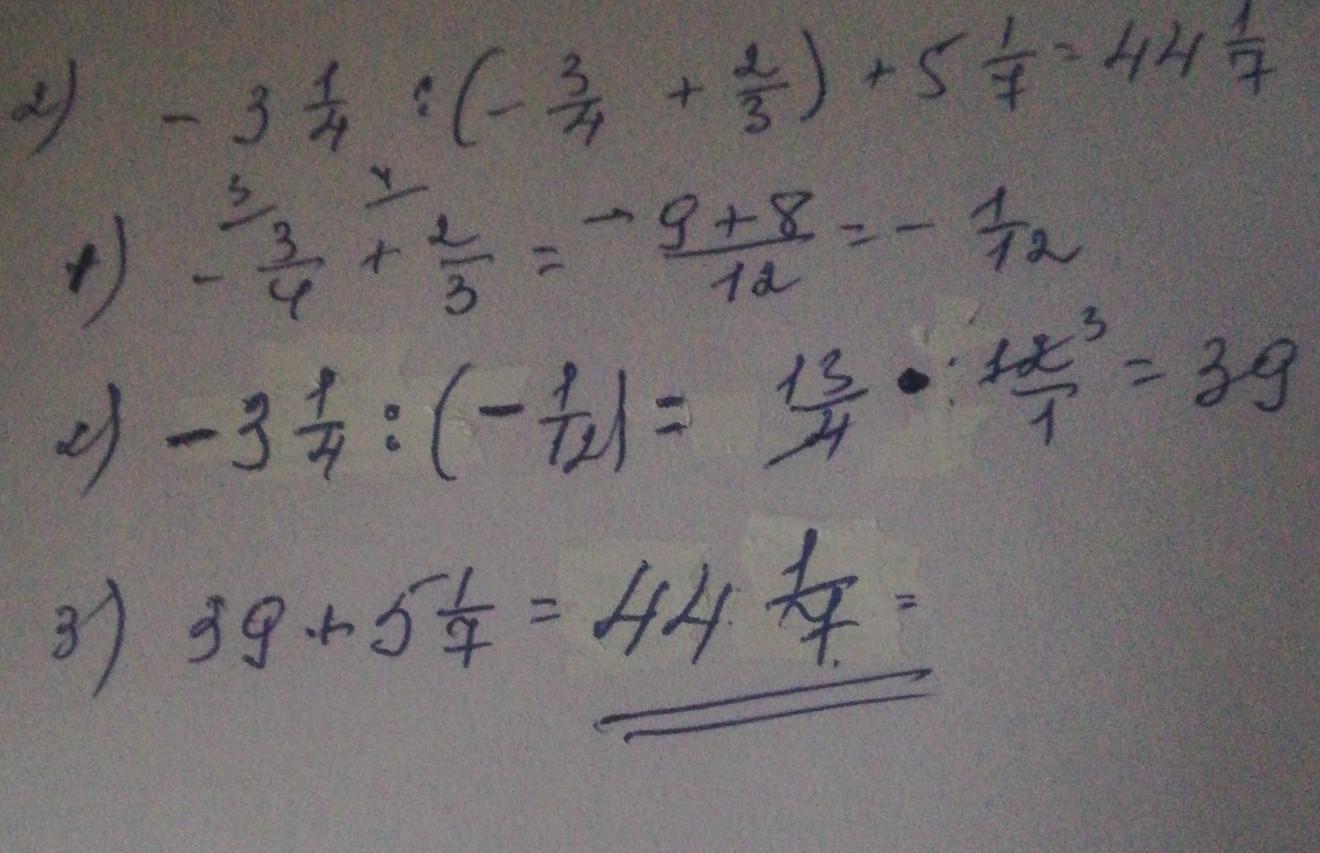 2) - 3 1/4 : (- 3/4 + 2/3) + 5 1/7 = 44 1/7
1) - 3/4 + 2/3 = - 9 + 8 / 12 = - 1/12
2) - 3 1/4 : (- 1/12) = 13/4 • 12/1 3 = 39
3) 39 + 5 1/7 = 44 1/7 =